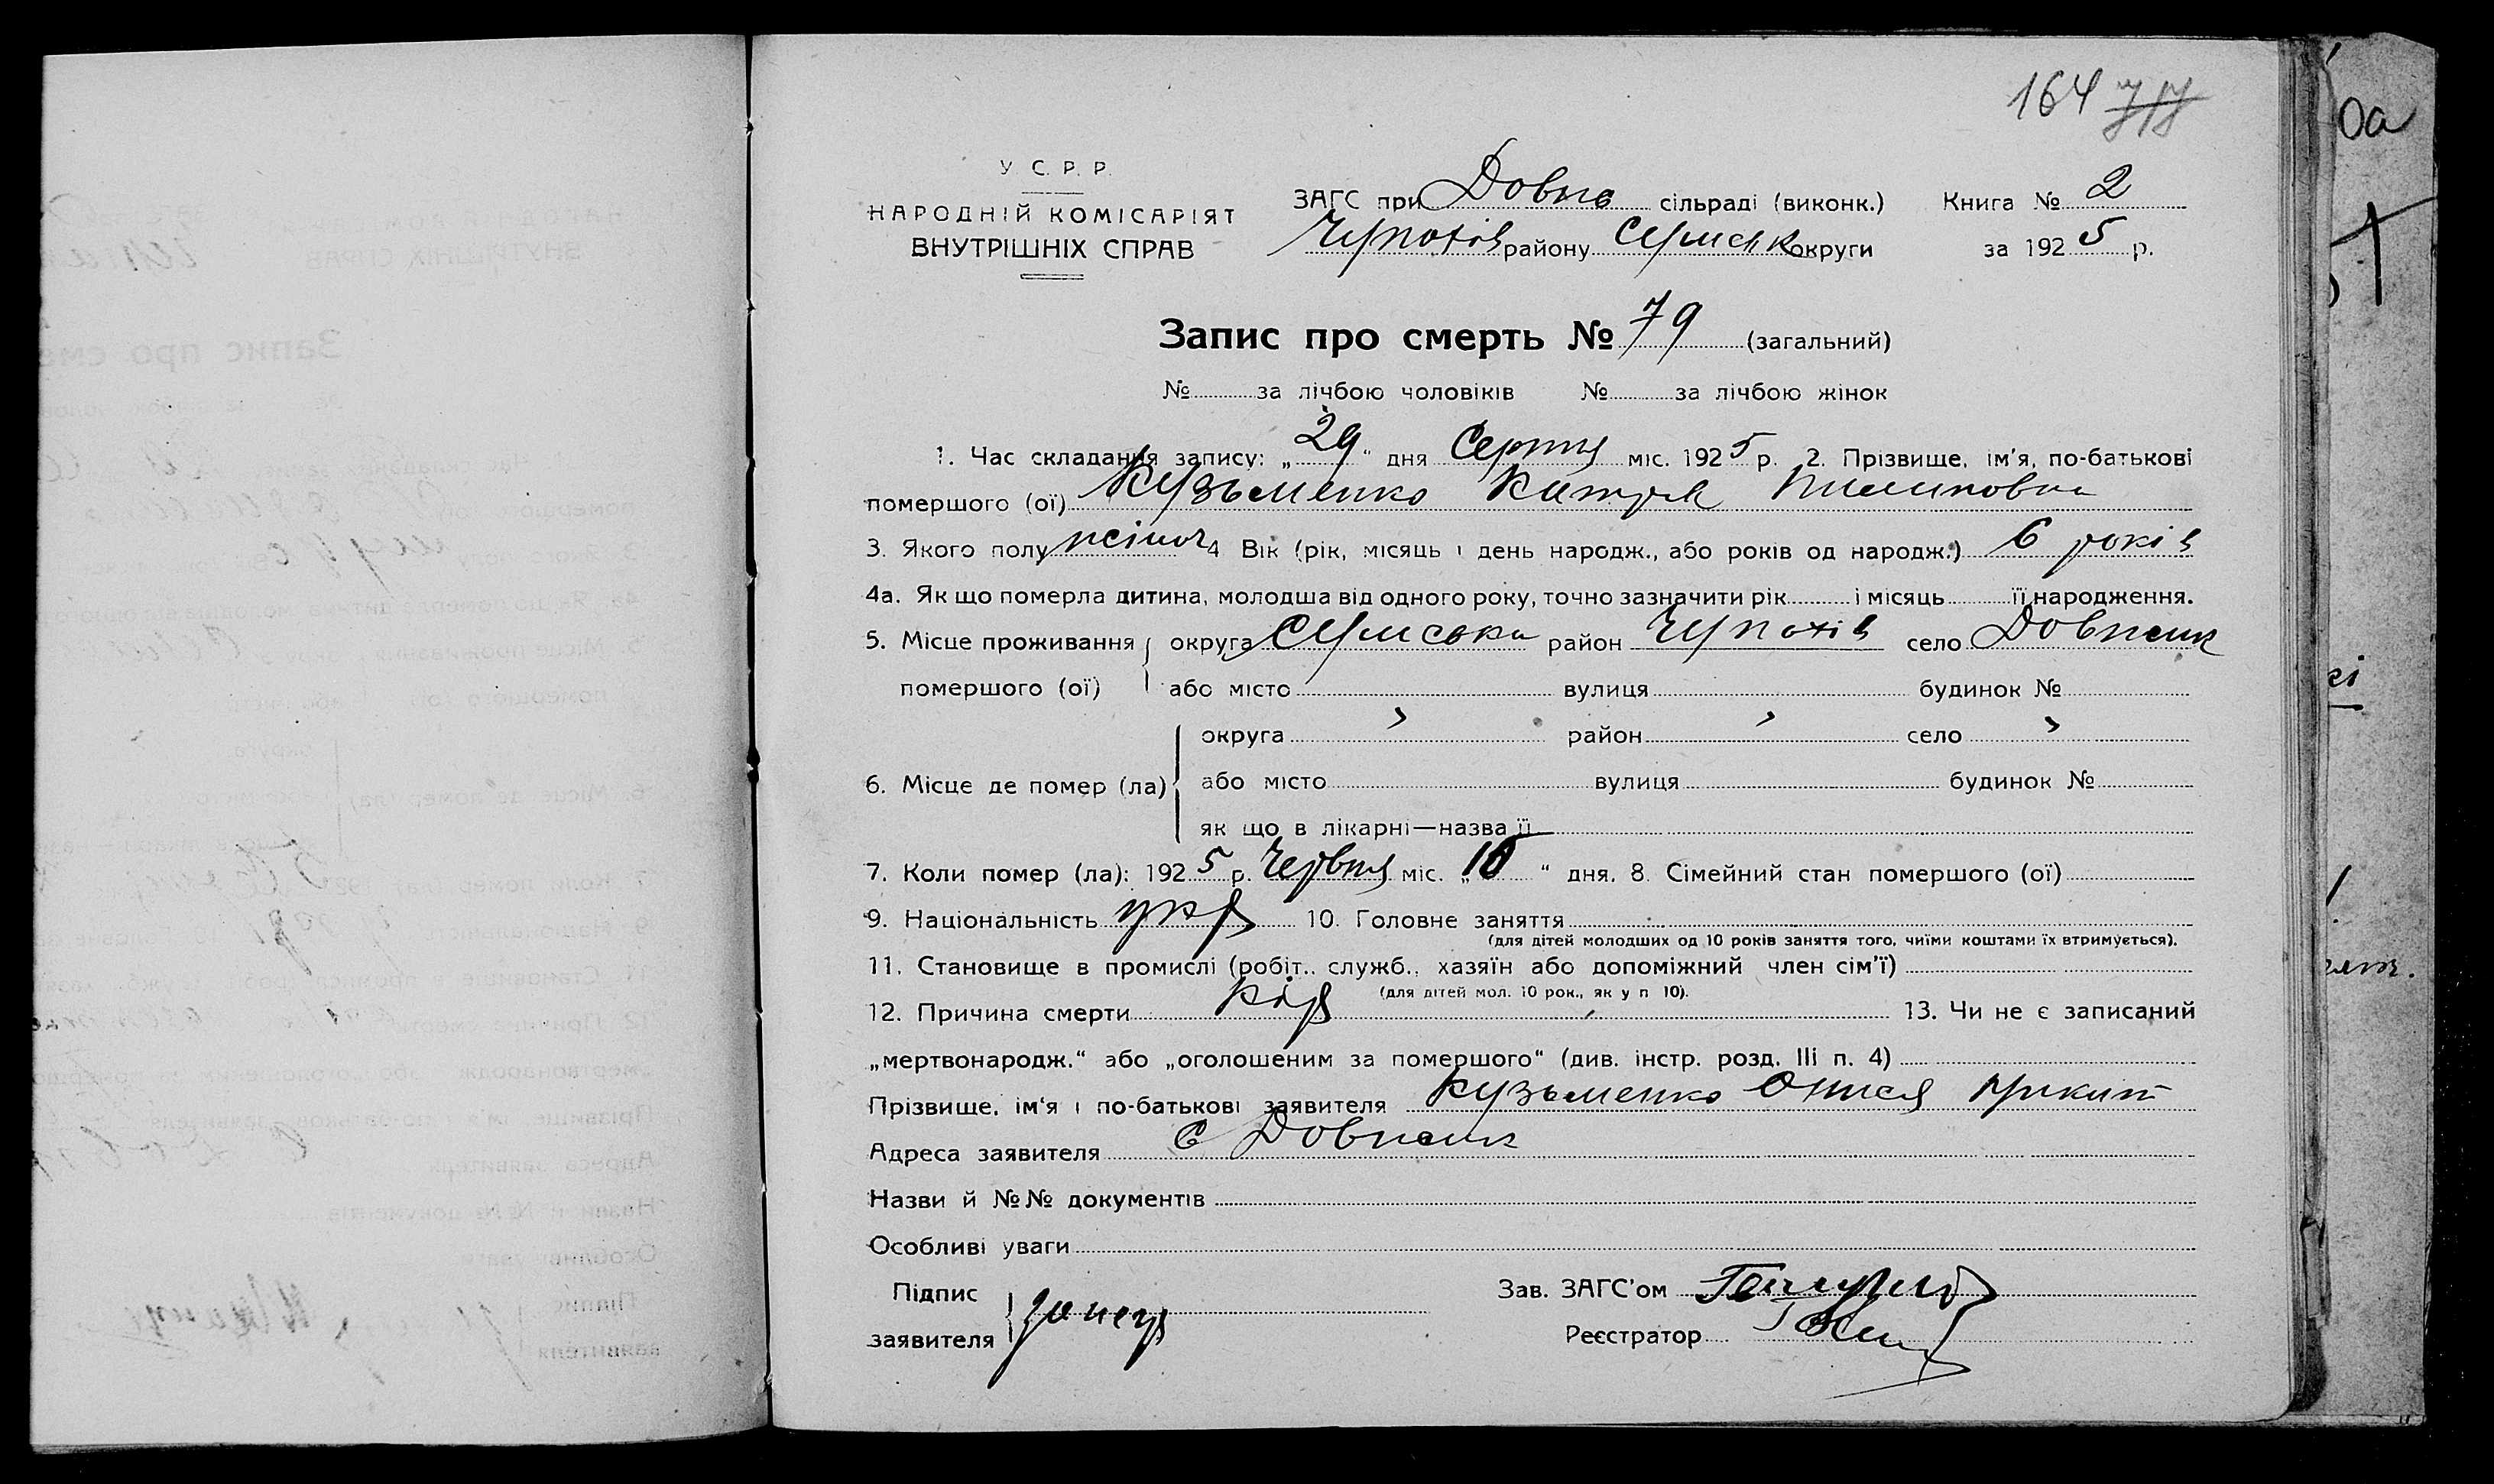 164
У С. Р. Р.
НАРОДНІЙ КОМІСАРІЯТ
ВНУТРІШНІХ СПРАВ
ЗАГС при Довпо сільраді (виконк.) Книга № 2
району Сумськ округи за 1925 р.
Запис про смерть № 79 (загальний)
№ за лічбою чоловіків № за лічбою жінок
1. Час складання запису: „29“ дня Серпня міс. 1925 р. 2. Прізвище, ім'я, по-батькові
помершого (ої) Кузьменко Катря Пилиповна
3. Якого полу жіноч 4 Вік (рік, місяць і день народж., або років од народж.) 6 років
4а. Як що померла дитина, молодша від одного року, точно зазначити рік і місяць її народження.
5. Місце проживання округа Сумська район село
помершого (ої) або місто вулиця будинок №
округа " район " село "
6. Місце де помер (ла) або місто вулиця будинок №
як що в лікарні—назва її
7. Коли помер (ла): 1925 р. Червня міс. „10“ дня. 8. Сімейний стан помершого (ої)
9. Національність укр 10. Головне заняття
(для дітей молодших од 10 років заняття того, чиїми коштами їх втримується).
11. Становище в промислі (робіт., служб., хазяїн або допоміжний член сім'ї)
(для дітей мол. 10 рок., як у п 10).
12. Причина смерти Кір 13. Чи не є записаний
„мертвонародж.“ або „оголошеним за помершого“ (див. інстр. розд. III п. 4)
Прізвище, ім'я і по-батькові заявителя Кузьменко
Адреса заявителя С
Назви й №№ документів
Особливі уваги
Підпис
заявителя
Зав. ЗАГС'ом
Реєстратор